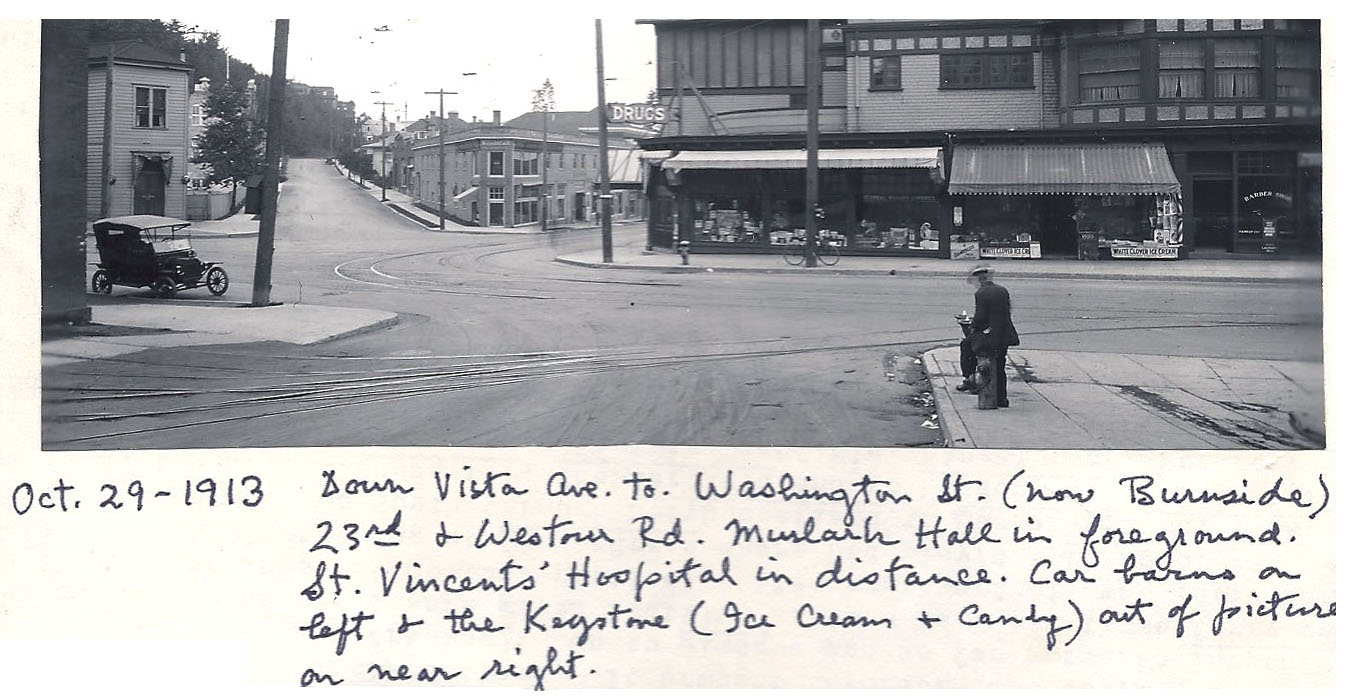 DRUGS
BARBER SHOP
WHITE CLOVER ICE CREAM
WHITE CLOVER ICE CREAM
Oct. 29-1913 Down Vista Ave. to. Washington St. (now Burnside)
23rd & Westour Rd. Murlark Hall in foreground.
St. Vincents' Hospital in distance. Car barns on
left & the Keystone (Ice Cream + Candy) out of picture
on near right.